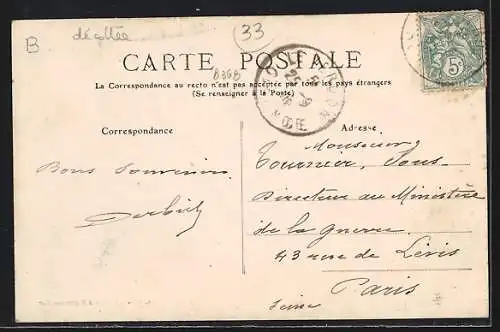 B
décollée
33
CARTE POSTALE
B36B
La Correspondance au recto n'est pas acceptée par tous les pays étrangers
(Se renseigner à la Poste)
5c
Correspondance
Adresse
Bons Souvenirs
Monsieur
Tournier, Sous-
Directeur au Ministère
de la Guerre
43 rue de Lévis
Paris
Seine